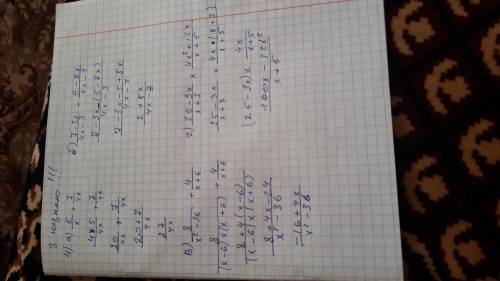 незнаю..!!!
4) а) 5/x + 7/4x
4×5/4x + 7/4x
20/4x + 7/4x
20+7/4x
27/4x
б) 7-3x/4x-3 - 5-8x/4x-3
7-3x-(5-8x)/4x-3
7-3x-5+8x/4x-3
2+5x/4x-3
в) 8/x²-36 + 4/x+6
8/(x-6)×(x+6) + 4/x+6
8+4(x-6)/(x-6)×(x+6)
8+4x-24/x²-36
-16+4x/x²-36
г) 25-3x/x+3 × 4x²+12x/x+5
25-3x/x+3 × 4x×(x+3)/x+5
(25-3x)× 4x/x+5
100x-12x²/x+5